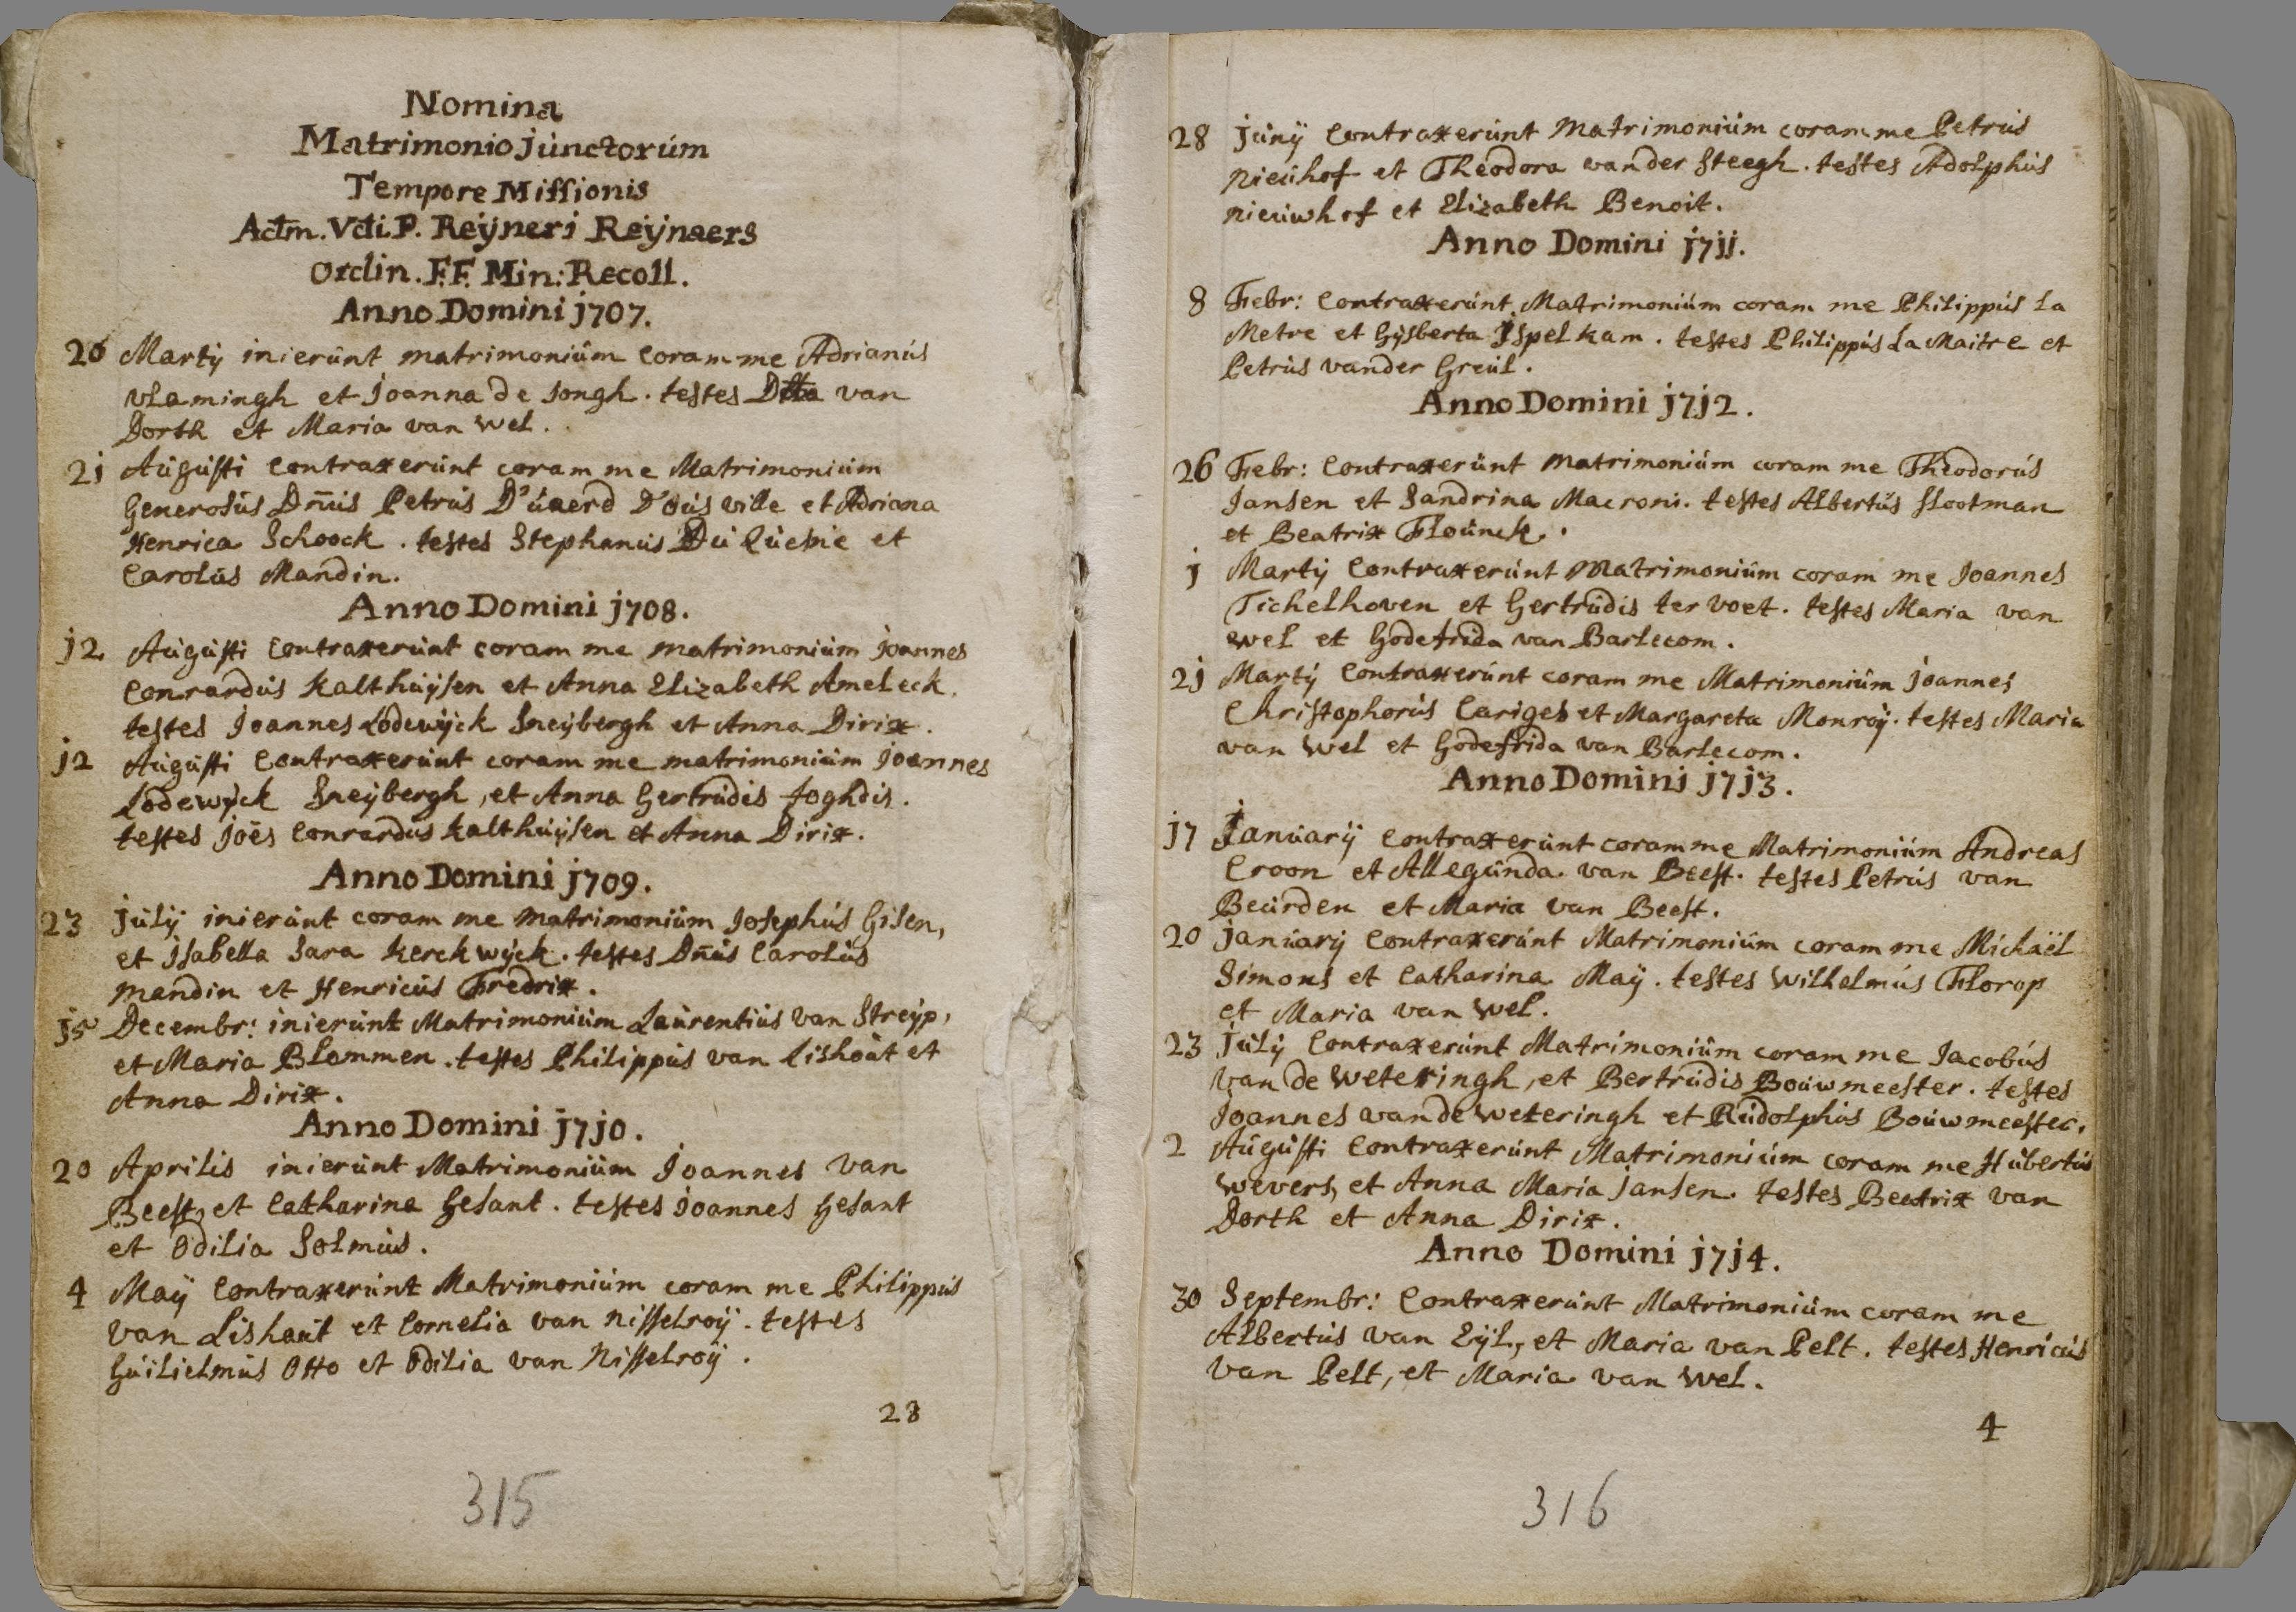 Nomina
Matrimonio júnctorúm
Tempore Missionis
Actm. Vdi. P. Reÿneri Reÿnaers
Ordin. F.F. Min: Recoll.
Anno Domini j707.
20 Martÿ inierúnt matrimoniúm coram me Adrianús
vlamingh et Joanna de Jongh. testes van
Dorth et Maria van Wel.
2j Aúgústi Contraxerúnt coram me Matrimoniúm
Generosús Dn̄ús Petrús D'úaerd D'oúsville et Adriana
Henrica Schoock. testes Stephanús Dú et
Carolús Mandin.
Anno Domini j708.
j2 Aúgústi Contraxerúnt coram me matrimoniúm Joannes
Conrardús Kalthúÿsen et Anna Elizabeth Ameleck.
testes Joannes Lodewÿck Sneÿbergh et Anna Dirix.
j2 Aúgústi Contraxerúnt coram me matrimoniúm Joannes
Lodewÿck Sneÿbergh, et Anna Gertrúdis Joghdis.
testes Joēs Conrardus Kalthúÿsen et Anna Dirix.
Anno Domini j709.
23 Júlÿ inierúnt coram me matrimoniúm Josephús Gisen,
et Isabella Sara Kerckwÿck. testes Dn̄ús Carolús
Mandin et Henricús Fredrix.
j5 Decembr: inierúnt Matrimoniúm Laúrentiús van Streÿp,
et Maria Blommen. testes Philippús van Lishoút et
Anna Dirix.
Anno Domini j7j0.
20 Aprilis inierúnt Matrimoniúm Joannes van
Beest, et Catharina Gesant. testes Joannes Gesant
et Odilia Solmús.
4 Maÿ Contraxerúnt Matrimoniúm coram me Philippús
van Lishaút et Cornelia van Nisselroÿ. testes
Gúilielmús Otto et Odilia van Nisselroÿ.
28
315
28 Júnÿ Contraxerúnt Matrimoniúm coram me Petrús
nieúhof et Theodora vander Steegh. testes Adolphús
nieúwhof et Elizabeth Benoit.
Anno Domini j7jj.
8 Febr: Contraxerúnt Matrimoniúm coram me Philippús La
Metre et Gÿsberta Ispelkam. testes Philippús La Maitre et
Petrús vander Greúl.
Anno Domini j7j2.
26 Febr: Contraxerúnt Matrimoniúm coram me Theodorús
Jansen et Sandrina Macroni. testes Albertús Slootman
et Beatrix Floúnck.
j Martÿ Contraxerúnt Matrimoniúm coram me Joannes
Tichelhoven et Gertrúdis ter voet. testes Maria van
Wel et Godefrida van Barlecom.
2j Martÿ Contraxerúnt coram me Matrimoniúm Joannes
Christophorús Cariges et Margareta Monroÿ. testes Maria
van Wel et Godefrida van Barlecom.
Anno Domini j7j3.
j7 Januarÿ Contraxerúnt coram me Matrimoniúm Andreas
Croon et Allegúnda van Beest. testes Petrús van
Beúrden et Maria van Beest.
20 Januarÿ Contraxerúnt Matrimoniúm coram me Michaël
Simons et Catharina Maÿ. testes Wilhelmús Florop
et Maria van Wel.
23 Júlÿ Contraxerúnt Matrimoniúm coram me Jacobús
van de Weteringh, et Bertrúdis Boúwmeester. testes
Joannes van de Weteringh et Rúdolphús Boúwmeester.
2 Aúgústi Contraxerúnt Matrimoniúm coram me Húbertús
Wevers, et Anna Maria Jansen. testes Beatrix van
Dorth et Anna Dirix.
Anno Domini j7j4.
30 Septembr: Contraxerúnt Matrimoniúm coram me
Albertús van Eÿl, et Maria van Pelt. testes Henricús
van Pelt, et Maria van Wel.
4
316